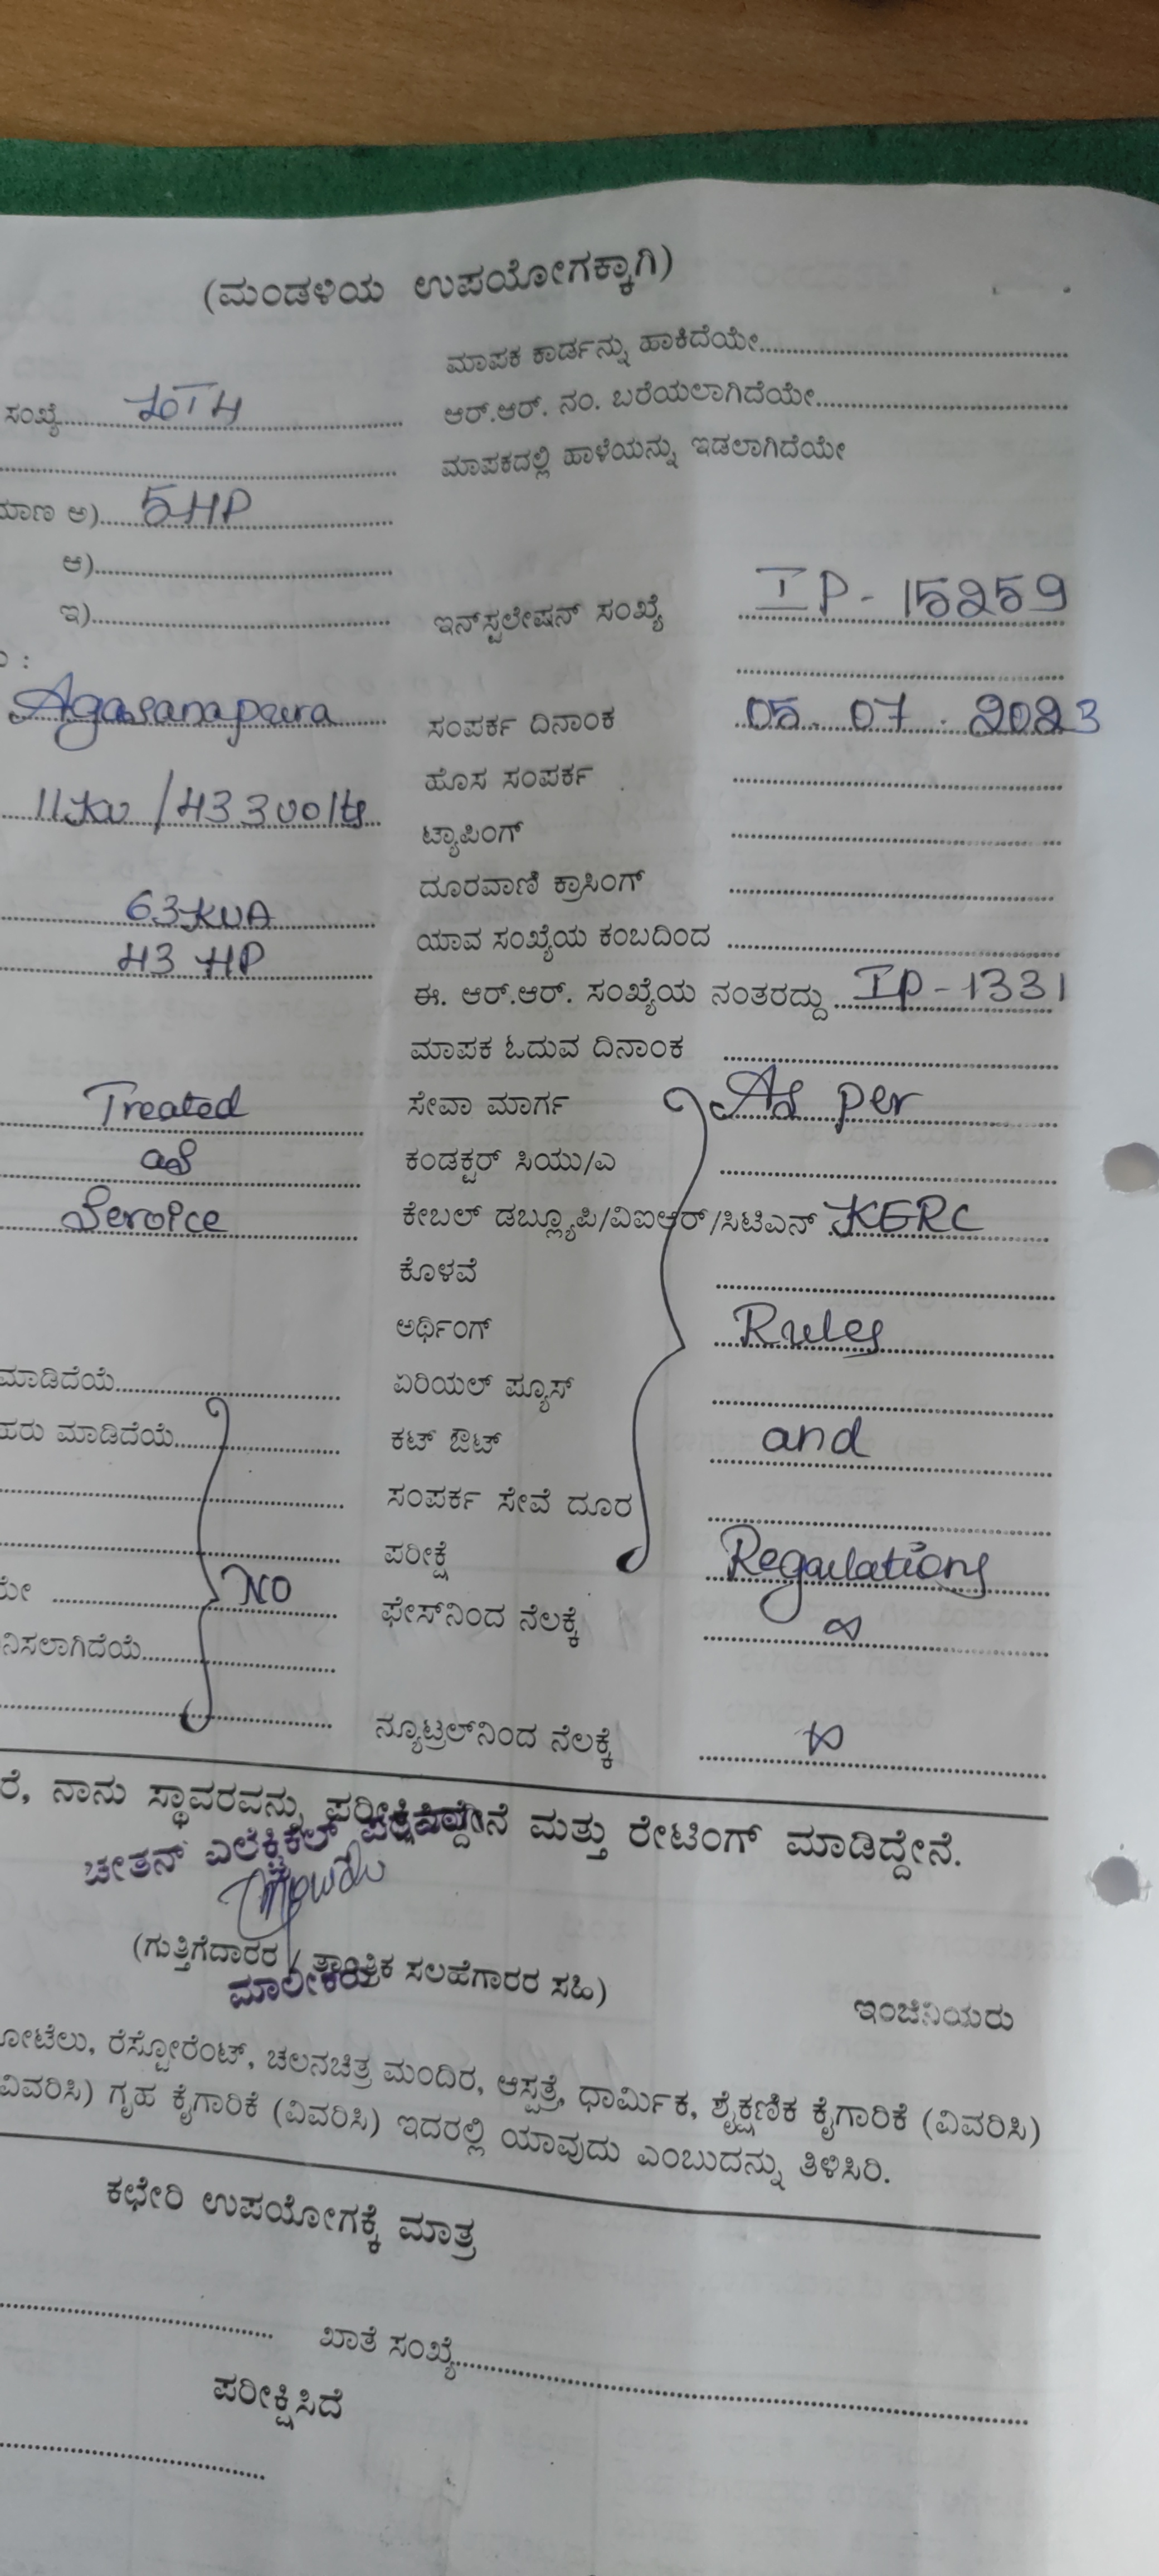 (ಮಂಡಳಿಯ ಉಪಯೋಗಕ್ಕಾಗಿ)
ಮಾಪಕ ಕಾರ್ಡನ್ನು ಹಾಕಿದೆಯೇ
ಸಂಖ್ಯೆ
ಆರ್.ಆರ್. ನಂ. ಬರೆಯಲಾಗಿದೆಯೇ
ಮಾಪಕದಲ್ಲಿ ಹಾಳೆಯನ್ನು ಇಡಲಾಗಿದೆಯೇ
ಮಾಣ ಅ) 5HP
ಆ)
ಇ) ಇನ್‌ಸ್ಟಲೇಷನ್ ಸಂಖ್ಯೆ IP-15259
Agasanapura ಸಂಪರ್ಕ ದಿನಾಂಕ 05.07.2023
ಹೊಸ ಸಂಪರ್ಕ
11kv/433volts ಟ್ಯಾಪಿಂಗ್
ದೂರವಾಣಿ ಕ್ರಾಸಿಂಗ್
63KVA ಯಾವ ಸಂಖ್ಯೆಯ ಕಂಬದಿಂದ
43 HP ಈ. ಆರ್.ಆರ್. ಸಂಖ್ಯೆಯ ನಂತರದ್ದು IP-1331
ಮಾಪಕ ಓದುವ ದಿನಾಂಕ
Treated ಸೇವಾ ಮಾರ್ಗ As per
as ಕಂಡಕ್ಟರ್ ಸಿಯು/ಎ
Service ಕೇಬಲ್ ಡಬ್ಲ್ಯೂಪಿ/ವಿಐಆರ್/ಸಿಟಿಎನ್ KERC
ಕೊಳವೆ
ಅರ್ಥಿಂಗ್ Rules
ಮಾಡಿದೆಯೆ ಏರಿಯಲ್ ಪ್ಯೂಸ್
ಹರು ಮಾಡಿದೆಯೆ ಕಟ್ ಔಟ್ and
ಸಂಪರ್ಕ ಸೇವೆ ದೂರ
ಪರೀಕ್ಷೆ Regulations
NO ಫೇಸ್‌ನಿಂದ ನೆಲಕ್ಕೆ ∞
ನಿಸಲಾಗಿದೆಯೆ
ನ್ಯೂಟ್ರಲ್‌ನಿಂದ ನೆಲಕ್ಕೆ ∞
ರೆ, ನಾನು ಸ್ಥಾವರವನ್ನು ಪರೀಕ್ಷಿಸಿದ್ದೇನೆ ಮತ್ತು ರೇಟಿಂಗ್ ಮಾಡಿದ್ದೇನೆ.
ಚೇತನ್ ಎಲೆಕ್ಟ್ರಿಕಲ್
(ಗುತ್ತಿಗೆದಾರರ / ತಾಂತ್ರಿಕ ಸಲಹೆಗಾರರ ಸಹಿ)
ಮಾಲೀಕರು
ಇಂಜಿನಿಯರು
ಹೋಟೆಲು, ರೆಸ್ಟೋರೆಂಟ್, ಚಲನಚಿತ್ರ ಮಂದಿರ, ಆಸ್ಪತ್ರೆ, ಧಾರ್ಮಿಕ, ಶೈಕ್ಷಣಿಕ ಕೈಗಾರಿಕೆ (ವಿವರಿಸಿ)
ವಿವರಿಸಿ) ಗೃಹ ಕೈಗಾರಿಕೆ (ವಿವರಿಸಿ) ಇದರಲ್ಲಿ ಯಾವುದು ಎಂಬುದನ್ನು ತಿಳಿಸಿರಿ.
ಕಛೇರಿ ಉಪಯೋಗಕ್ಕೆ ಮಾತ್ರ
ಖಾತೆ ಸಂಖ್ಯೆ
ಪರೀಕ್ಷಿಸಿದೆ